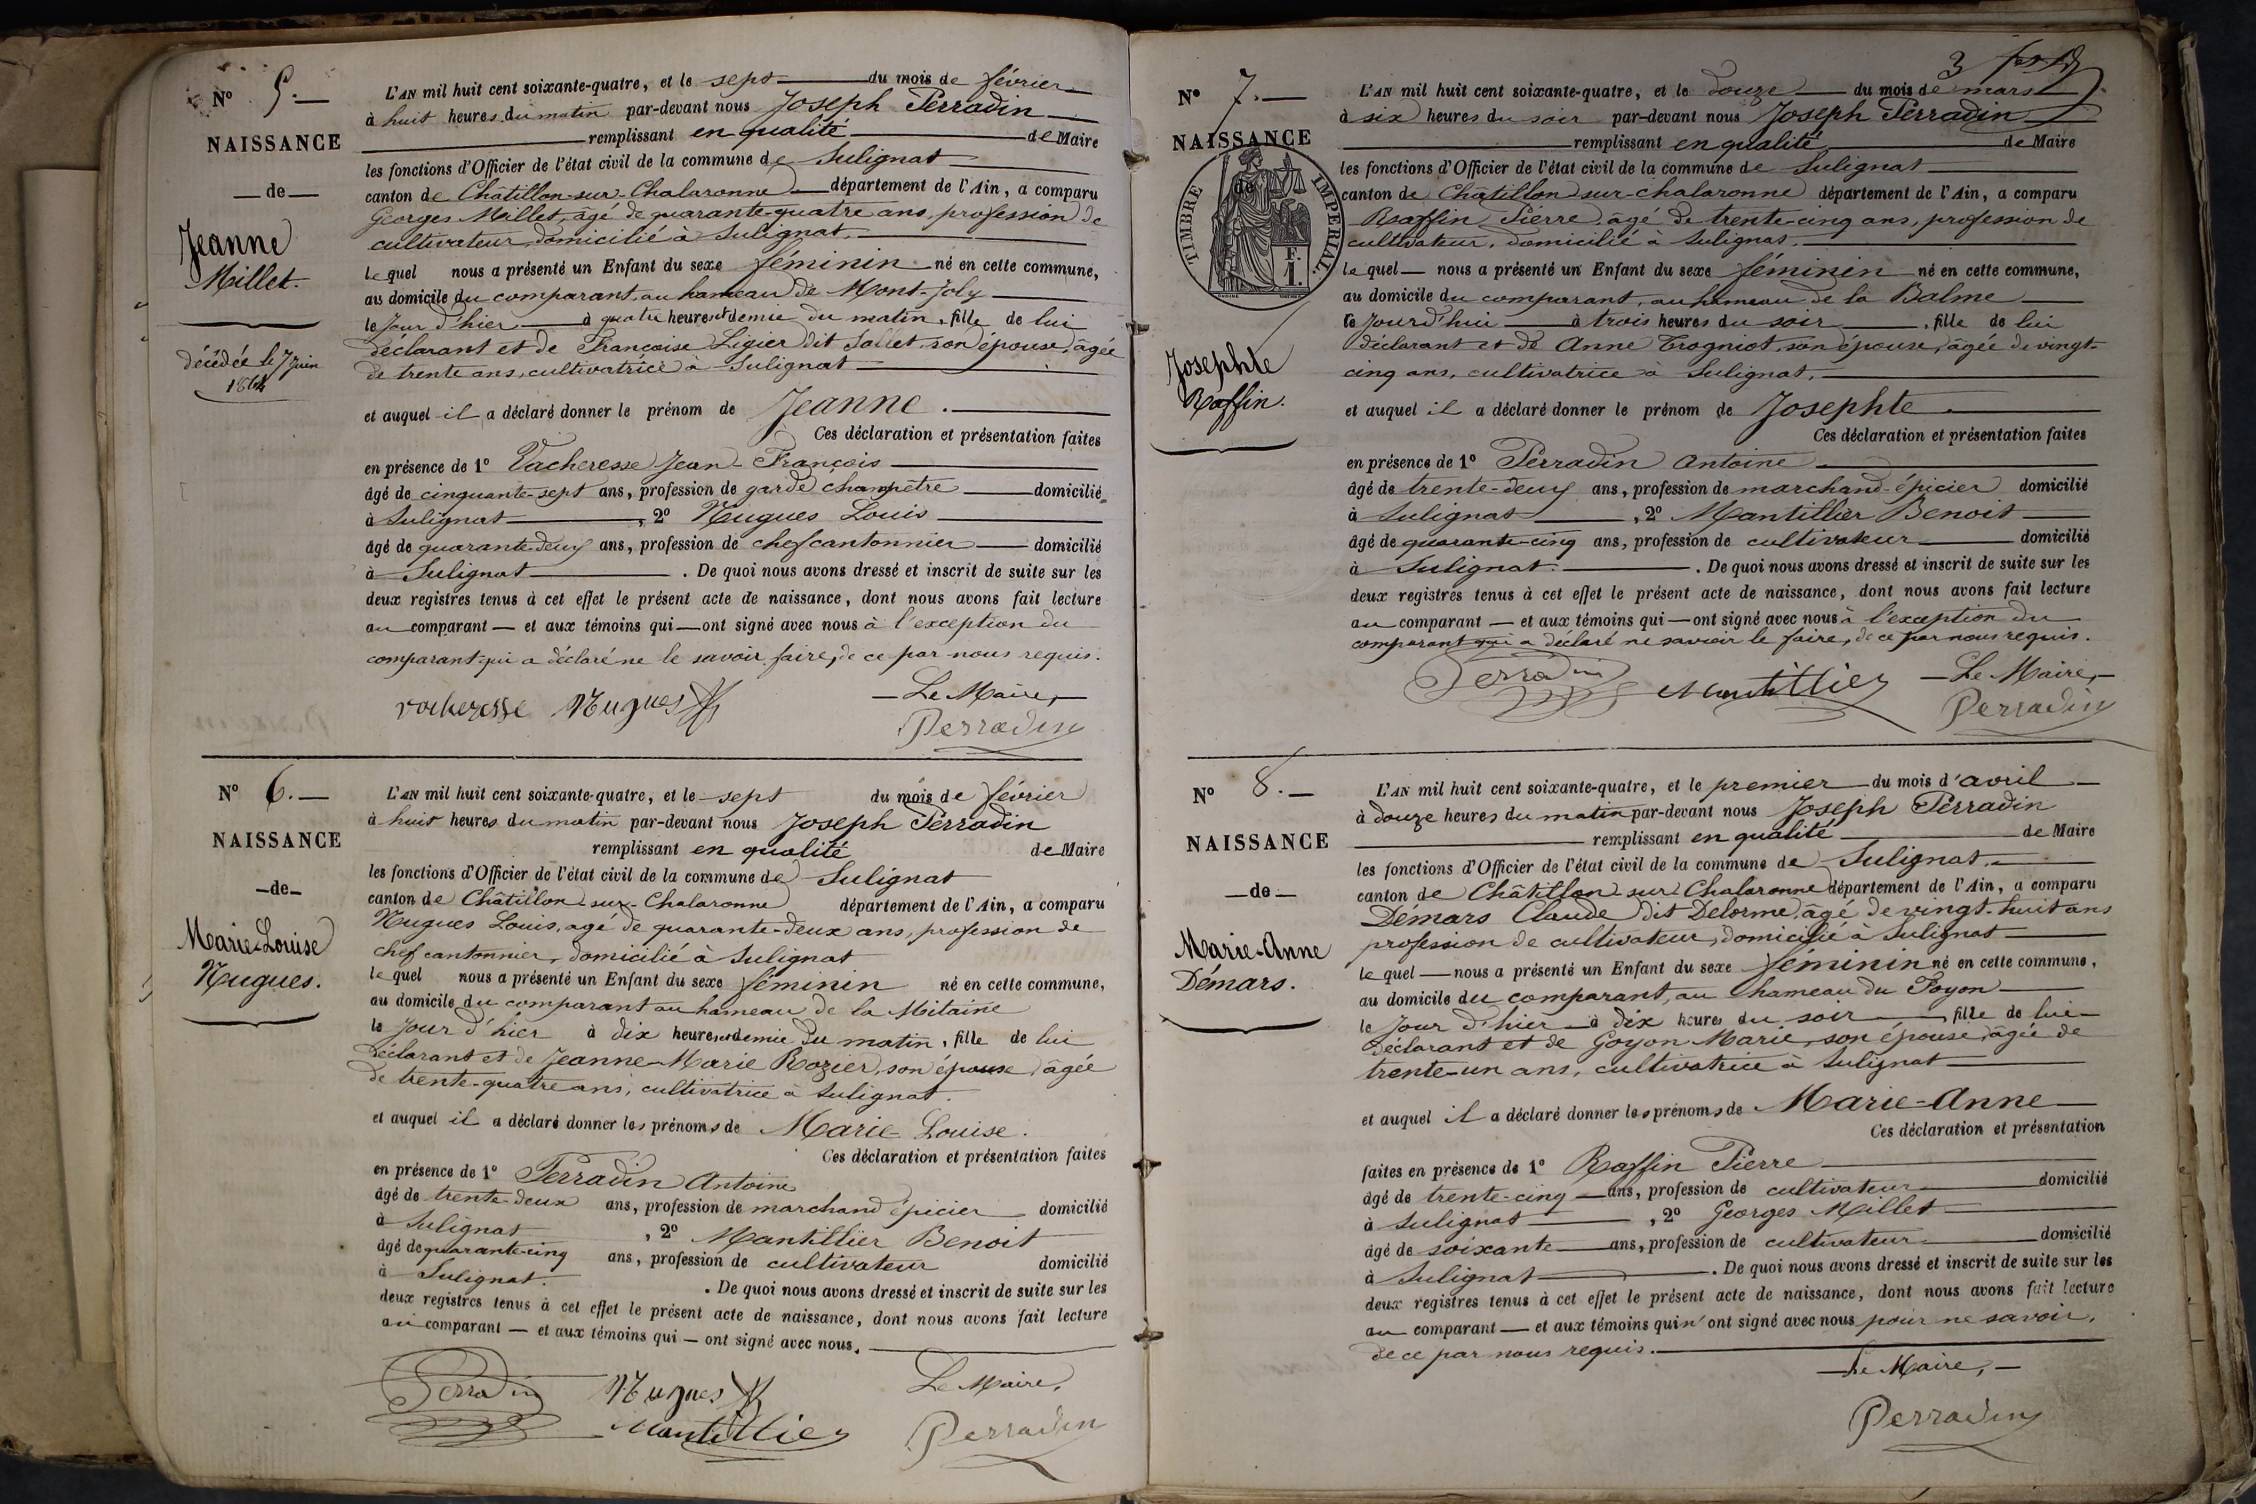 N° 5. —
NAISSANCE
— de —
Jeanne
Millet.
décédée le 7 Juin
1864
L'AN mil huit cent soixante-quatre, et le sept — du mois de février —
à huit heures du matin par-devant nous Joseph Perradin —
— remplissant en qualité — de Maire
les fonctions d'Officier de l'état civil de la commune de Sulignat —
canton de Châtillon-sur-Chalaronne — département de l'Ain, a comparu
Georges Millet, âgé de quarante-quatre ans, profession de
cultivateur, domicilié à Sulignat. —
lequel nous a présenté un Enfant du sexe féminin né en cette commune,
au domicile du comparant, au hameau de Mont-Joly —
le jour d'hier — à quatre heures et demie du matin, fille de lui
déclarant et de Françoise Ligier dit Sallet, son épouse, âgée
de trente ans, cultivatrice à Sulignat —
et auquel il a déclaré donner le prénom de Jeanne. —
Ces déclaration et présentation faites
en présence de 1° Vacheresse Jean-François —
âgé de cinquante-sept ans, profession de garde champêtre — domicilié
à Sulignat —, 2° Nugues Louis —
âgé de quarante-deux ans, profession de chef cantonnier — domicilié
à Sulignat — . De quoi nous avons dressé et inscrit de suite sur les
deux registres tenus à cet effet le présent acte de naissance, dont nous avons fait lecture
au comparant — et aux témoins qui — ont signé avec nous à l'exception du
comparant qui a déclaré ne le savoir faire, de ce par nous requis.
vacheresse Nugues — Le Maire, —
Perradin
N° 6. —
NAISSANCE
— de —
Marie-Louise
Nugues.
L'AN mil huit cent soixante-quatre, et le sept du mois de février
à huit heures du matin par-devant nous Joseph Perradin
remplissant en qualité de Maire
les fonctions d'Officier de l'état civil de la commune de Sulignat
canton de Châtillon-sur-Chalaronne département de l'Ain, a comparu
Nugues Louis, agé de quarante-deux ans, profession de
chef cantonnier, domicilié à Sulignat
lequel nous a présenté un Enfant du sexe féminin né en cette commune,
au domicile du comparant au hameau de la Mitaine
le jour d'hier à dix heures et demie du matin, fille de lui
déclarant et de Jeanne-Marie Rozier, son épouse, âgée
de trente-quatre ans, cultivatrice à Sulignat.
et auquel il a déclaré donner les prénoms de Marie-Louise.
Ces déclaration et présentation faites
en présence de 1° Perradin Antoine
âgé de trente-deux ans, profession de marchand épicier domicilié
à Sulignat, 2° Mantillier Benoit
âgé de quarante-cinq ans, profession de cultivateur domicilié
à Sulignat. . De quoi nous avons dressé et inscrit de suite sur les
deux registres tenus à cet effet le présent acte de naissance, dont nous avons fait lecture
au comparant — et aux témoins qui — ont signé avec nous. —
Perradin Nugues Le Maire,
Mantillier Perradin
3
N° 7. —
NAISSANCE
de
TIMBRE IMPERIAL.
F.
1.
Josephte
Raffin.
L'AN mil huit cent soixante-quatre, et le douze — du mois de mars —
à six heures du soir par-devant nous Joseph Perradin
— remplissant en qualité — de Maire
les fonctions d'Officier de l'état civil de la commune de Sulignat —
canton de Châtillon sur-chalaronne département de l'Ain, a comparu
Raffin Pierre, agé de trente-cinq ans, profession de
cultivateur, domicilié à Sulignat. —
lequel — nous a présenté un Enfant du sexe féminin — né en cette commune,
au domicile du comparant, au hameau de la Balme —
le jourd'hui — à trois heures du soir —, fille de lui
déclarant et de Anne Trogniot, son épouse, âgée de vingt-
cinq ans, cultivatrice à Sulignat, —
et auquel il a déclaré donner le prénom de Josephte. —
Ces déclaration et présentation faites
en présence de 1° Perradin Antoine —
âgé de trente-deux ans, profession de marchand-épicier domicilié
à Sulignat —, 2° Mantillier Benoit —
âgé de quarante-cinq ans, profession de cultivateur — domicilié
à Sulignat. — . De quoi nous avons dressé et inscrit de suite sur les
deux registres tenus à cet effet le présent acte de naissance, dont nous avons fait lecture
au comparant — et aux témoins qui — ont signé avec nous à l'exception du
comparant qui a déclaré ne savoir le faire, de ce par nous requis.
Perradin Mantillier — Le Maire, —
Perradin
N° 8. —
NAISSANCE
— de —
Marie-Anne
Démars.
L'AN mil huit cent soixante-quatre, et le premier — du mois d'avril —
à douze heures du matin par-devant nous Joseph Perradin
— remplissant en qualité — de Maire
les fonctions d'Officier de l'état civil de la commune de Sulignat. —
canton de Châtillon-sur Chalaronne département de l'Ain, a comparu
Démars Claude dit Delorme, âgé de vingt-huit ans
profession de cultivateur, domicilié à Sulignat —
lequel — nous a présenté un Enfant du sexe féminin né en cette commune,
au domicile du comparant, au hameau du Foyon —
le jour d'hier — à dix heures du soir — fille de lui —
déclarant et de Goyon Marie, son épouse, âgée de
trente-un ans, cultivatrice à Sulignat —
et auquel il a déclaré donner les prénoms de Marie-Anne —
Ces déclaration et présentation
faites en présence de 1° Raffin Pierre —
âgé de trente-cinq — ans, profession de cultivateur — domicilié
à Sulignat —, 2° Georges Millet —
âgé de soixante — ans, profession de cultivateur — domicilié
à Sulignat — . De quoi nous avons dressé et inscrit de suite sur les
deux registres tenus à cet effet le présent acte de naissance, dont nous avons fait lecture
au comparant — et aux témoins qui n'ont signé avec nous pour ne savoir,
de ce par nous requis. —
— Le Maire, —
Perradin